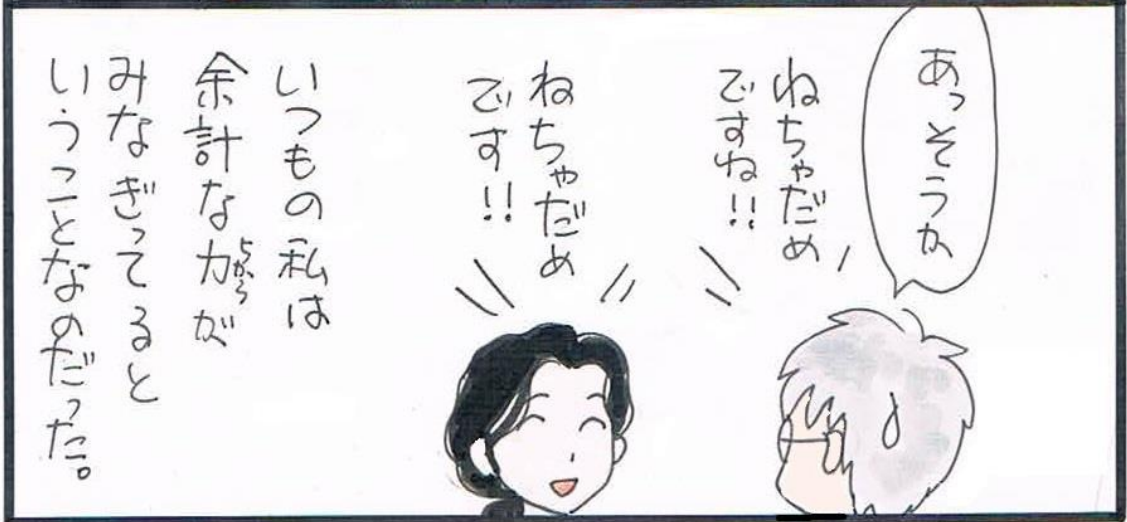 あっそうか
ねちゃだめ
ですね!!
ねちゃだめ
です!!
いつもの私は
余計な力が
ちから
みなぎってると
いうことなのだった。